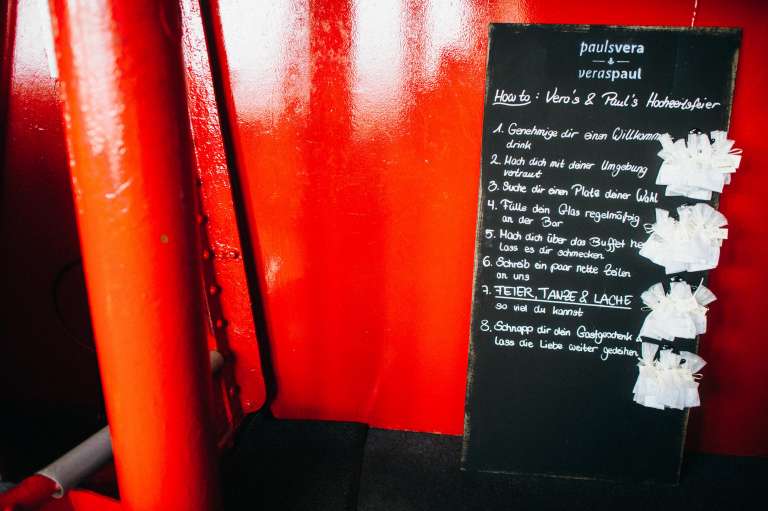 paulsvera
&
veraspaul
How to: Vera's & Paul's Hochzeitsfeier
1. Genehmige dir einen Willkommens
drink
2. Mach dich mit deiner Umgebung
vertraut
3. Suche dir einen Platz deiner Wahl
4. Fülle dein Glas regelmäßig
an der Bar
5. Mach dich über das Buffet he
lass es dir schmecken
6. Schreib ein paar nette Zeilen
an uns
7. FEIER, TANZE & LACHE
so viel du kannst
8. Schnapp dir dein Gastgeschenk
lass die Liebe weiter gedeihen